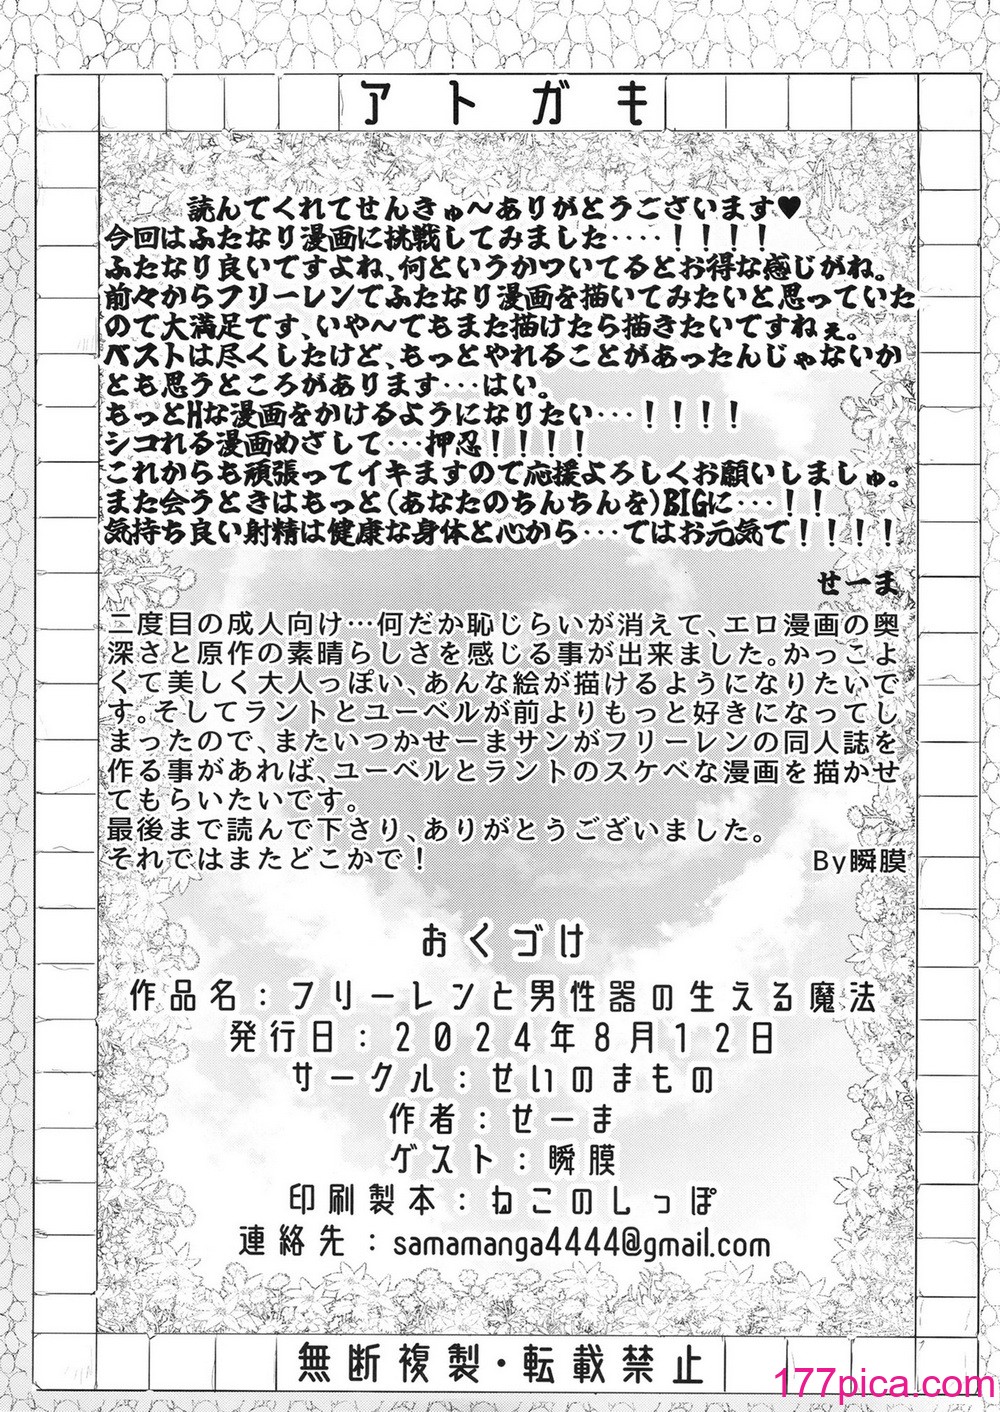 アトガキ
読んでくれてせんきゅ～ありがとうございます♥
今回はふたなり漫画に挑戦してみました‥‥！！！！
ふたなり良いですよね、何というかツいてるとお得な感じがね。
前々からフリーレンでふたなり漫画を描いてみたいと思っていた
ので大満足です、いや～でもまた描けたら描きたいですねぇ。
ベストは尽くしたけど、もっとやれることがあったんじゃないか
とも思うところがあります…はい。
もっとHな漫画をかけるようになりたい…！！！！
シコれる漫画めざして…押忍！！！！
これからも頑張ってイキますので応援よろしくお願いしましゅ。
また会うときはもっと(あなたのちんちんを)BIGに…！！
気持ち良い射精は健康な身体と心から…ではお元気で！！！！
せーま
二度目の成人向け…何だか恥じらいが消えて、エロ漫画の奥
深さと原作の素晴らしさを感じる事が出来ました。かっこよ
くて美しく大人っぽい、あんな絵が描けるようになりたいで
す。そしてラントとユーベルが前よりもっと好きになってし
まったので、またいつかせーまサンがフリーレンの同人誌を
作る事があれば、ユーベルとラントのスケベな漫画を描かせ
てもらいたいです。
最後まで読んで下さり、ありがとうございました。
それではまたどこかで！
By瞬膜
おくづけ
作品名：フリーレンと男性器の生える魔法
発行日：2024年8月12日
サークル：せいのまもの
作者：せーま
ゲスト：瞬膜
印刷製本：ねこのしっぽ
連絡先：samamanga4444@gmail.com
無断複製・転載禁止
177pica.com